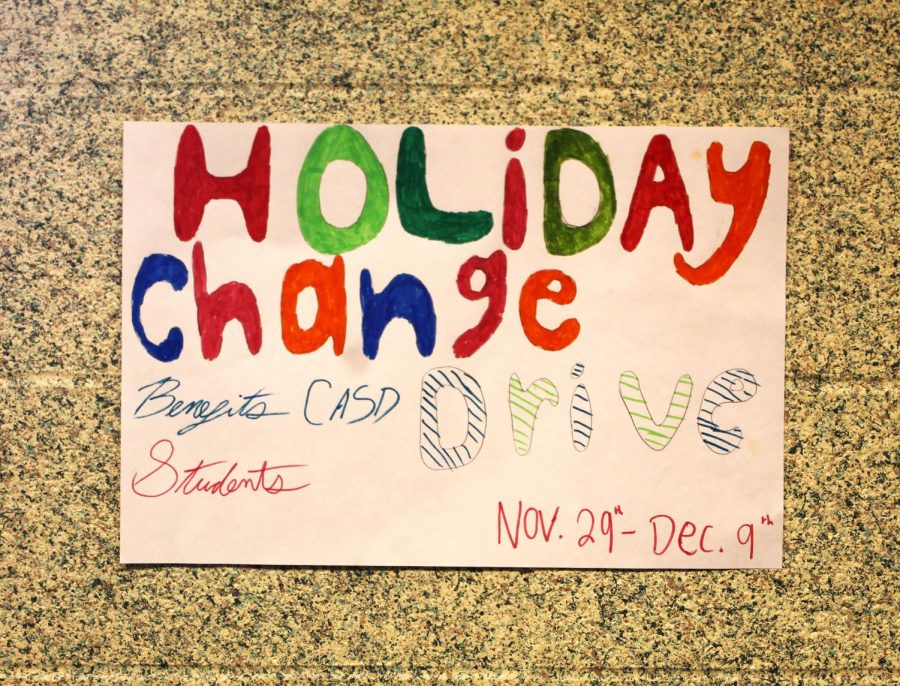 HOLiDAY
change
Drive
Benefits CASD
Students
Nov. 29th - Dec. 9th